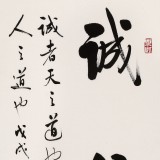 誠
誠者天之道也
人之道也戊戌